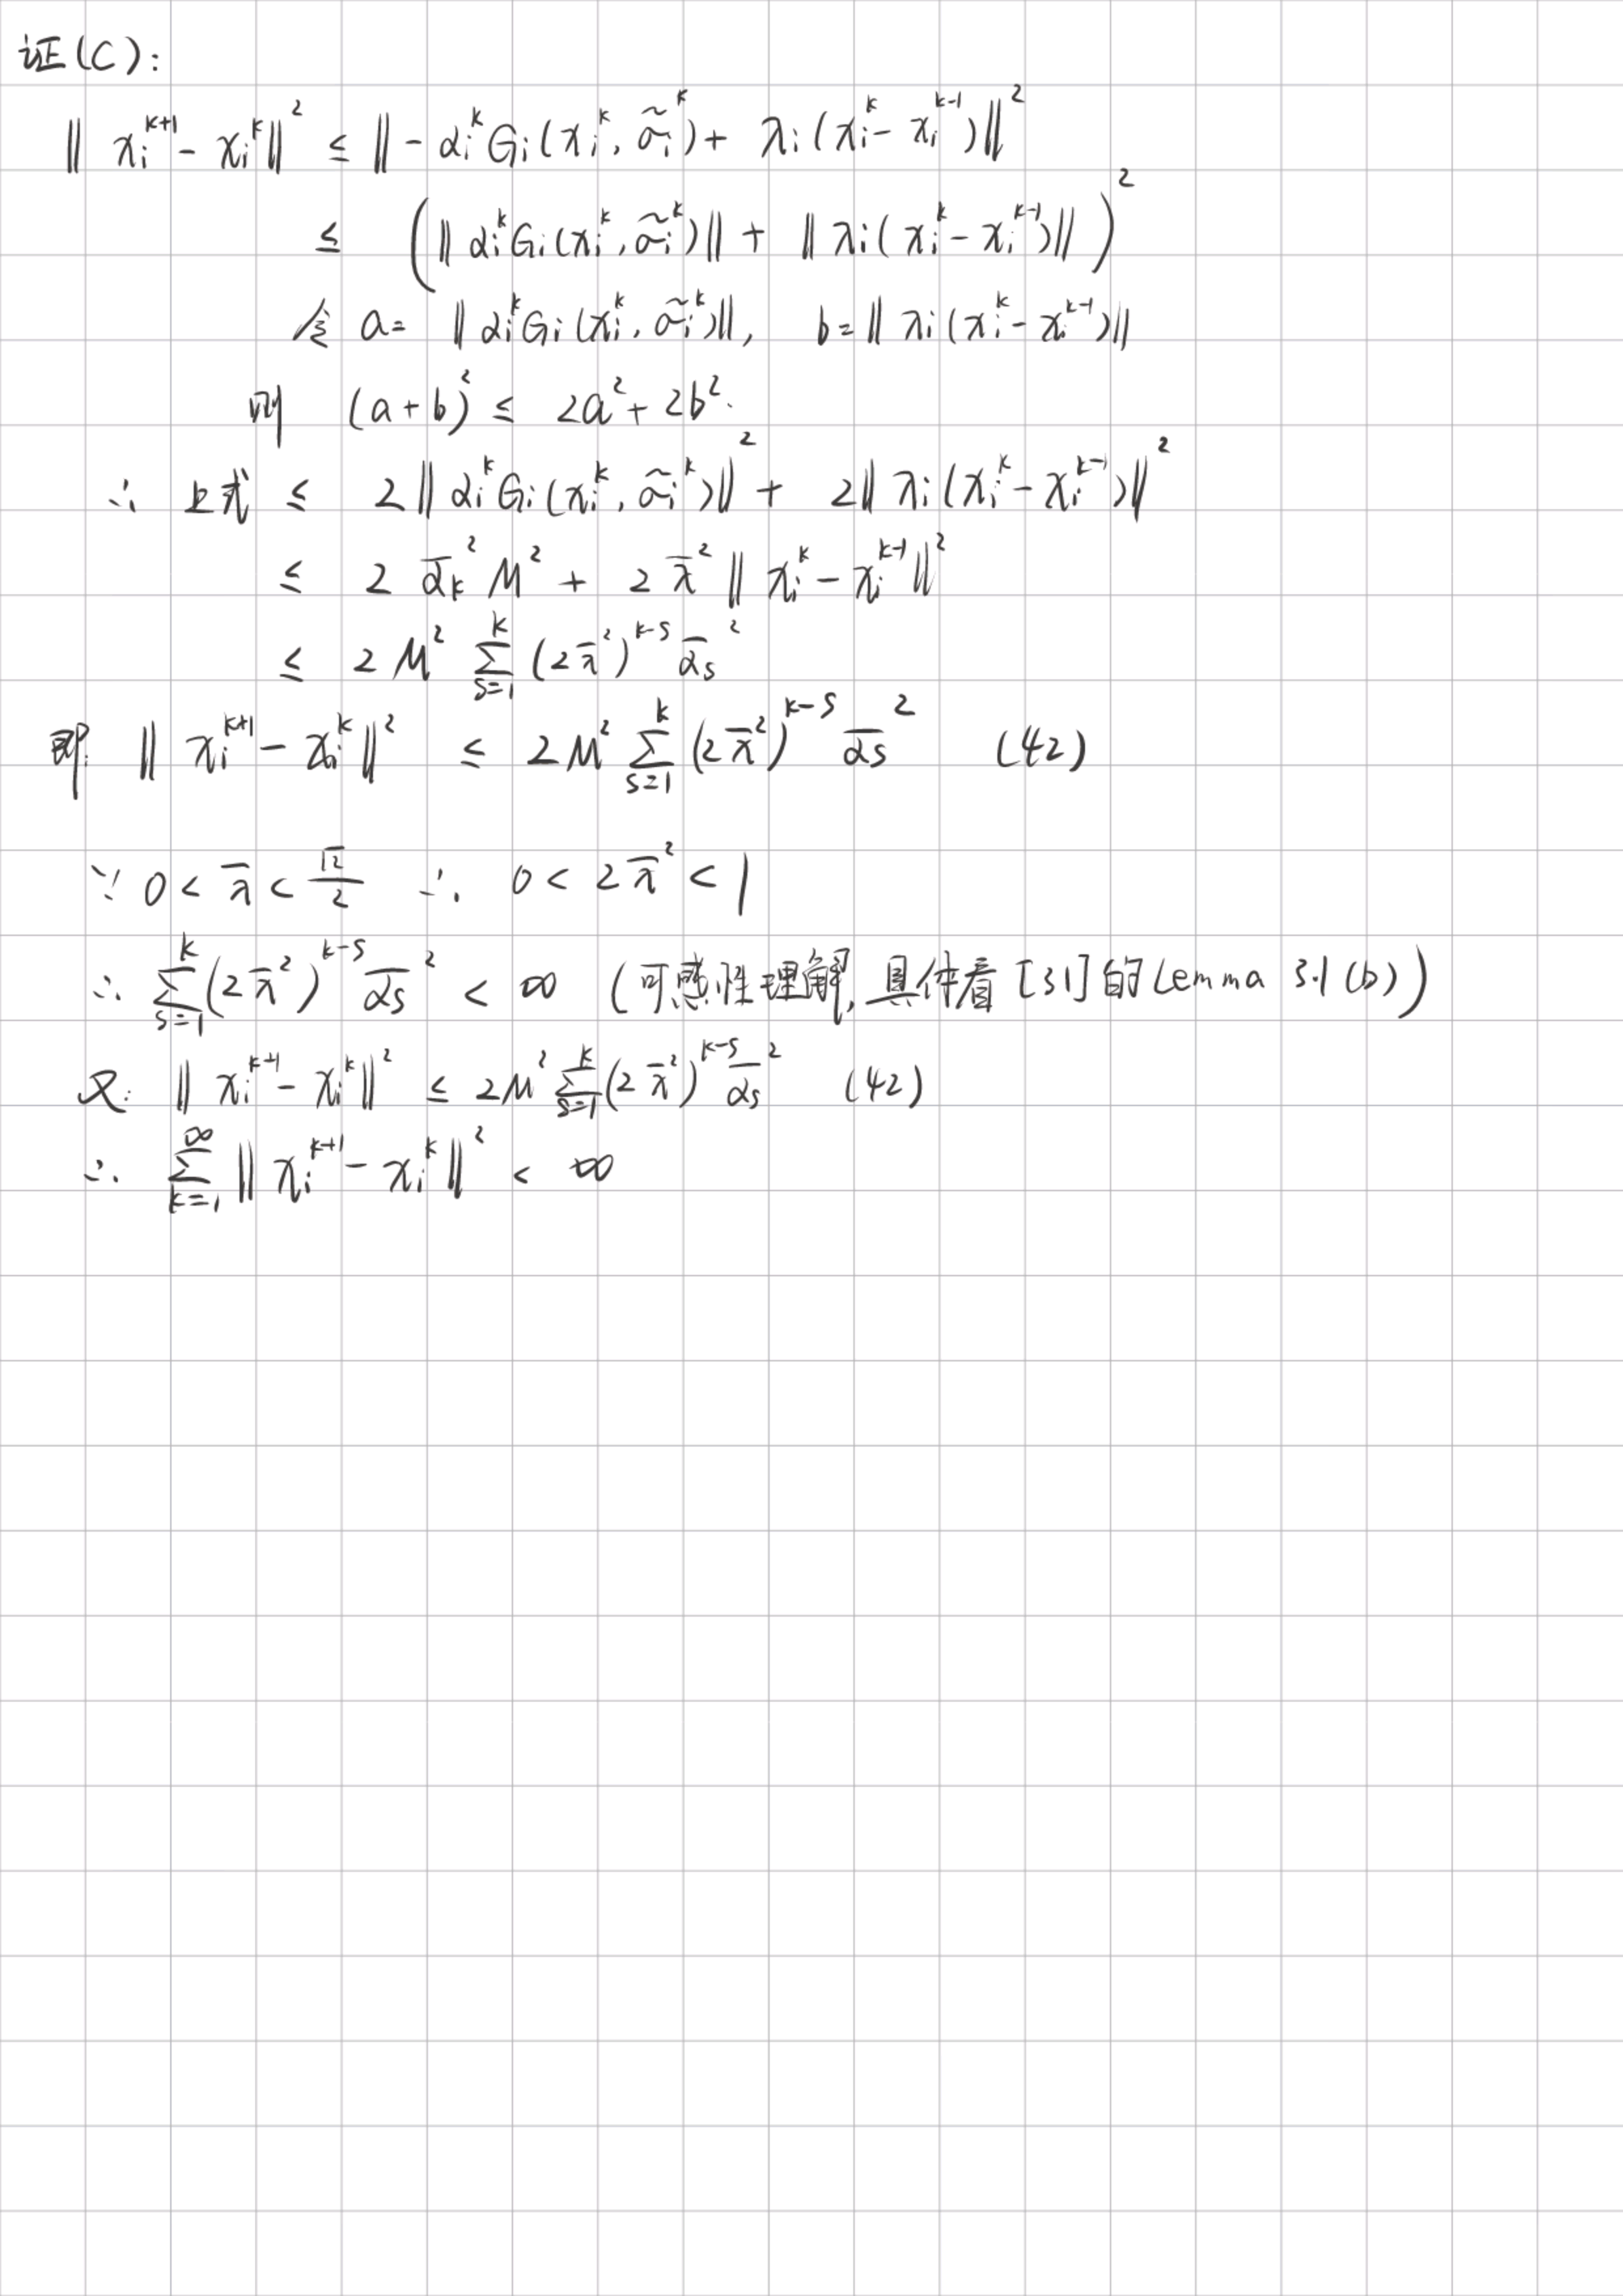 证(C):
‖ x_i^{k+1} - x_i^k ‖^2 ≤ ‖ - α_i^k G_i(x_i^k, \tilde{σ}_i^k) + λ_i (x_i^k - x_i^{k-1}) ‖^2
≤ ( ‖ α_i^k G_i(x_i^k, \tilde{σ}_i^k) ‖ + ‖ λ_i (x_i^k - x_i^{k-1}) ‖ )^2
令 a = ‖ α_i^k G_i(x_i^k, \tilde{σ}_i^k) ‖, b = ‖ λ_i (x_i^k - x_i^{k-1}) ‖
则 (a+b)^2 ≤ 2a^2 + 2b^2.
∴ 上式 ≤ 2‖ α_i^k G_i(x_i^k, \tilde{σ}_i^k) ‖^2 + 2‖ λ_i (x_i^k - x_i^{k-1}) ‖^2
≤ 2 \bar{α}_k^2 M^2 + 2 \bar{λ}^2 ‖ x_i^k - x_i^{k-1} ‖^2
≤ 2 M^2 \sum_{s=1}^{k} (2\bar{λ}^2)^{k-s} \bar{α}_s^2
即: ‖ x_i^{k+1} - x_i^k ‖^2 ≤ 2M^2 \sum_{s=1}^{k} (2\bar{λ}^2)^{k-s} \bar{α}_s^2 (42)
∵ 0 < \bar{λ} < \frac{\sqrt{2}}{2} ∴ 0 < 2\bar{λ}^2 < 1
∴ \sum_{s=1}^{k} (2\bar{λ}^2)^{k-s} \bar{α}_s^2 < ∞ (可感性理解, 具体看 [31] 的 Lemma 3.1 (b))
又: ‖ x_i^{k+1} - x_i^k ‖^2 ≤ 2M^2 \sum_{s=1}^{k} (2\bar{λ}^2)^{k-s} \bar{α}_s^2 (42)
∴ \sum_{k=1}^{∞} ‖ x_i^{k+1} - x_i^k ‖^2 < ∞